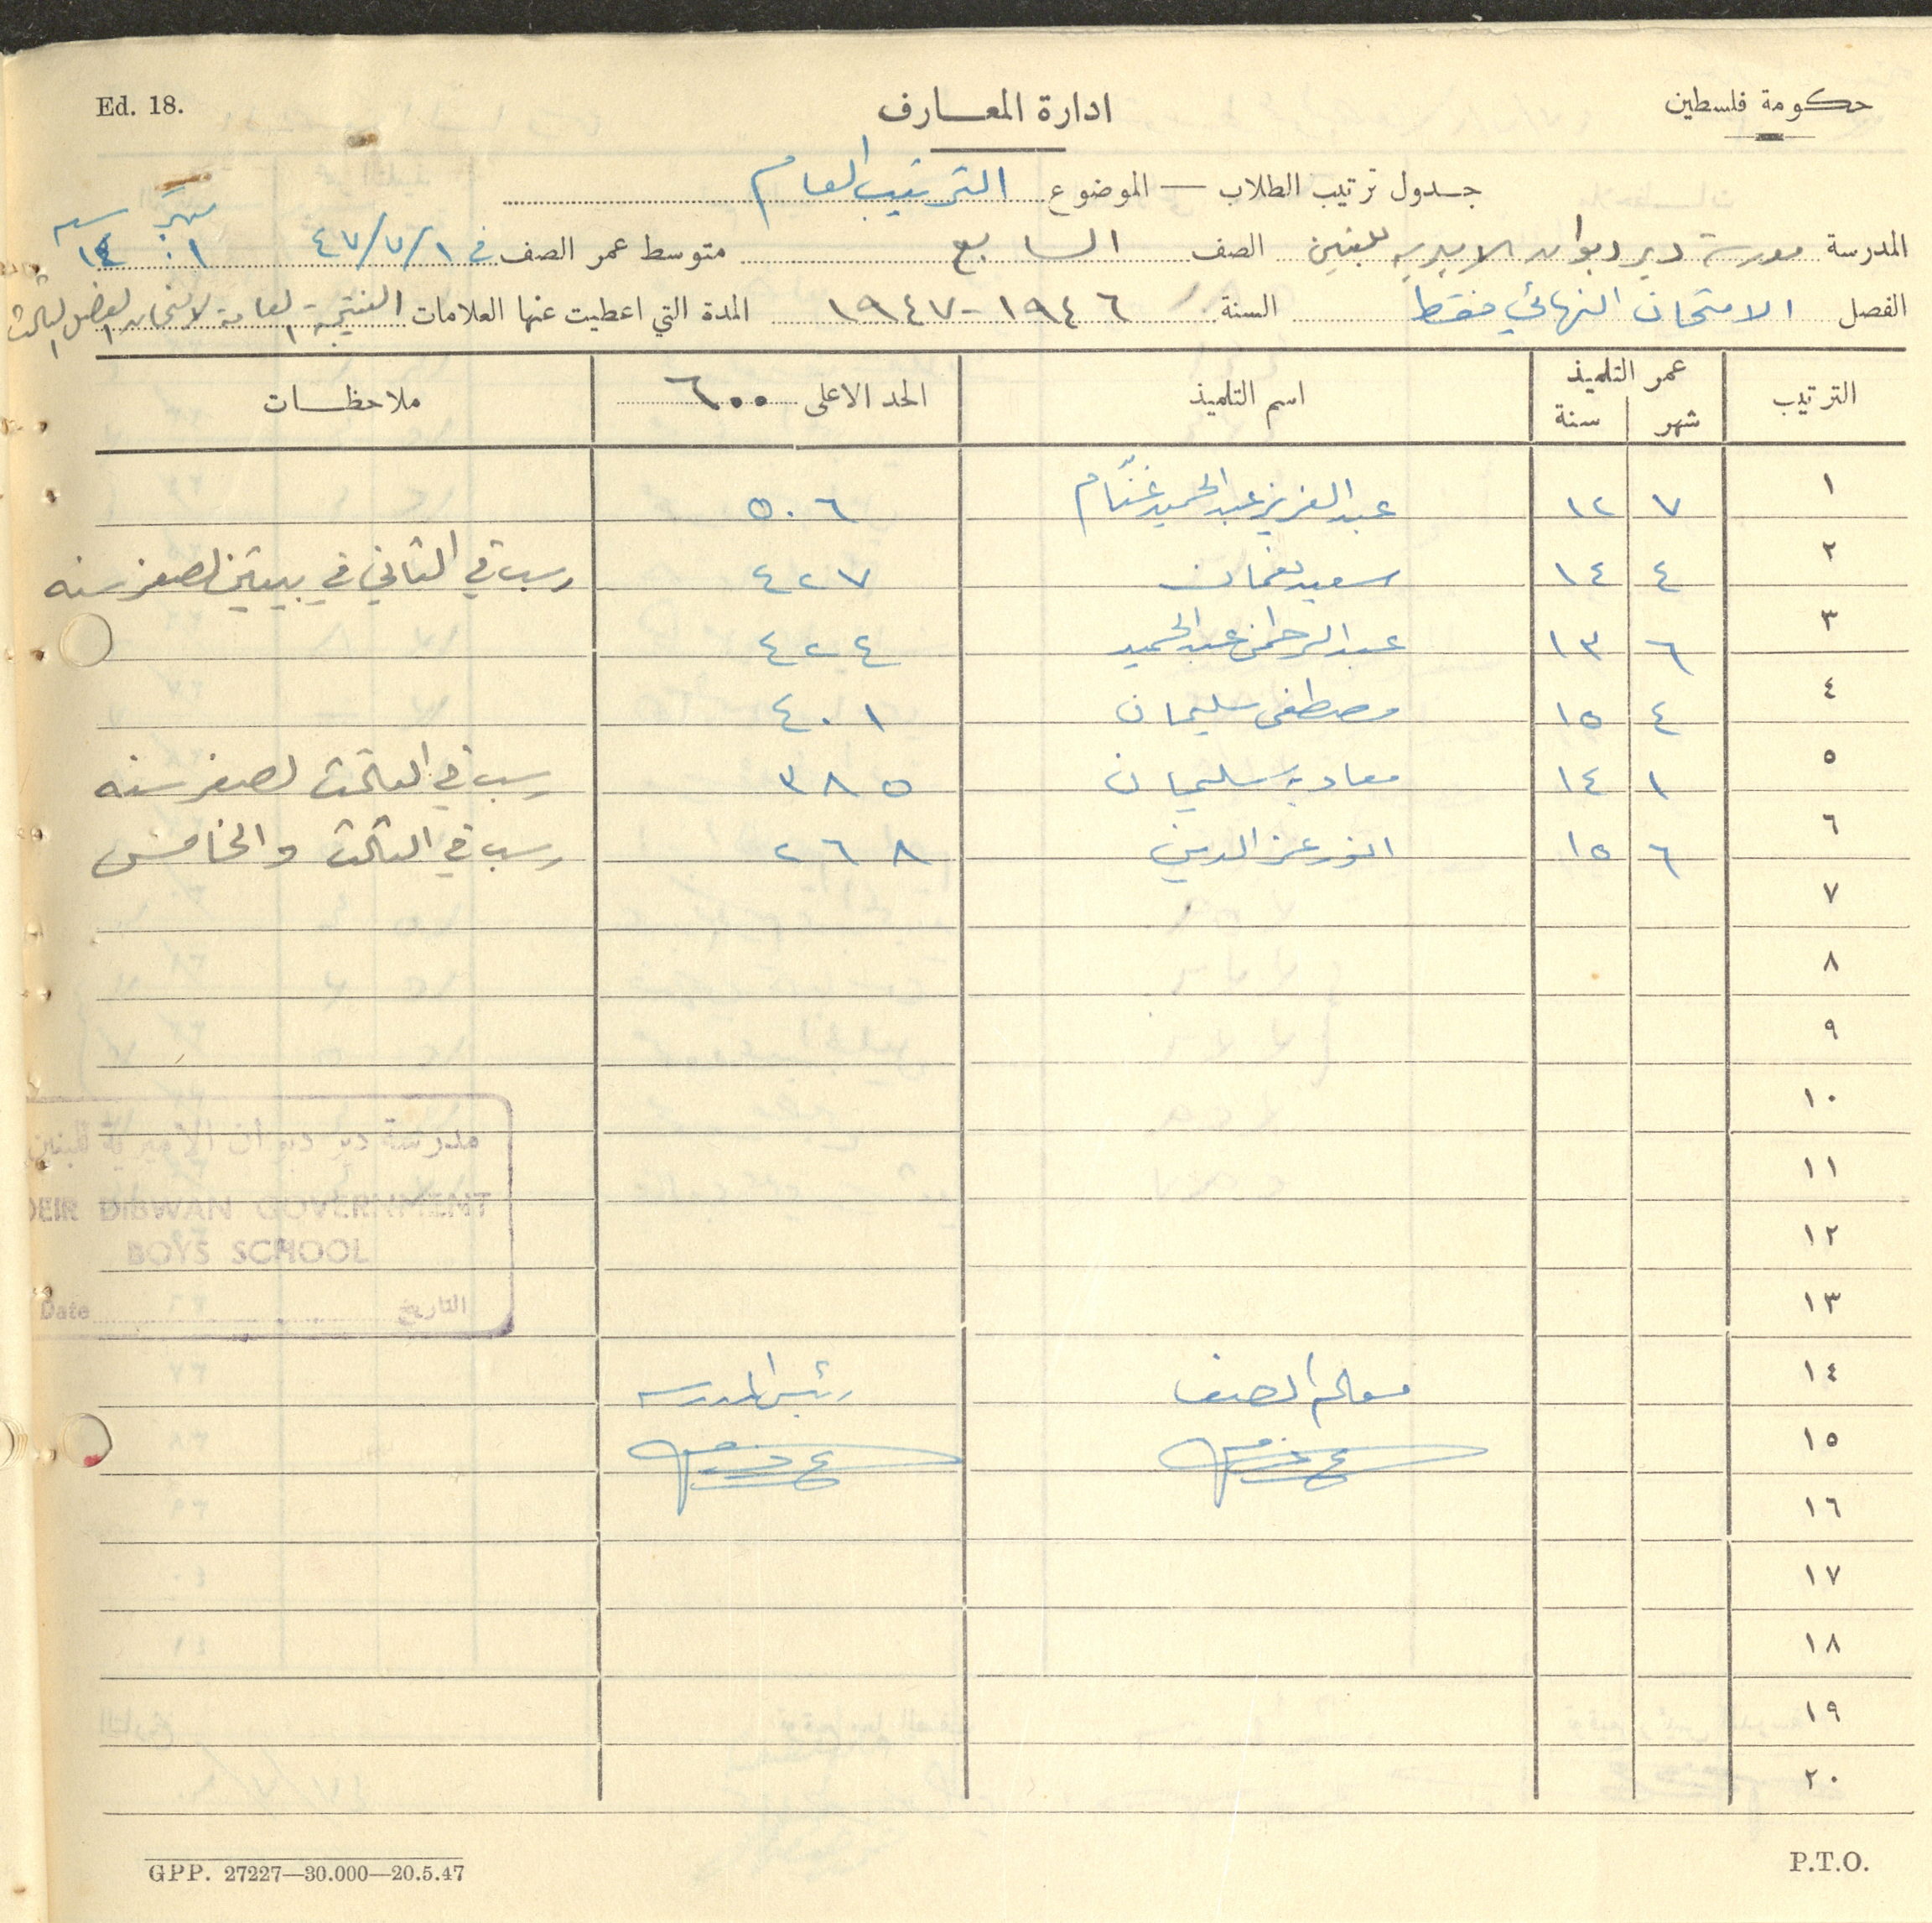 Ed. 18.
ادارة المعارف
حكومة فلسطين
جدول ترتيب الطلاب — الموضوع الترتيب العام
المدرسة مدرسة دير ديوان الاميرية للبنين الصف السابع متوسط عمر الصف في ٤٧/٧/١ شهر ١ سنه ١٤
الفصل الامتحان النهائي فقط السنة ١٩٤٦-١٩٤٧ المدة التي اعطيت عنها العلامات النتيجة العامة لامتحان الفصل الثالث
الترتيب عمر التلميذ اسم التلميذ الحد الاعلى ٦٠٠ ملاحظات
شهر سنة
١ ٧ ١٢ عبد العزيز عبد الحميد غنّام ٥٠٦
٢ ٤ ١٤ سعيد نعمان ٤٢٧ رسب في الثاني في بيتين لصغر سنه
٣ ٦ ١٣ عبد الرحمن عبد الحميد ٤٢٤
٤ ٤ ١٥ مصطفى سليمان ٤٠١
٥ ١ ١٤ معاويه سليمان ٣٨٥ رسب في الثالث لصغر سنه
٦ ٦ ١٥ انور عز الدين ٢٦٨ رسب في الثالث والخامس
٧
٨
٩
١٠
مدرسة دير ديوان الاميرية للبنين
١١
DEIR DIBWAN GOVERNMENT
١٢
BOYS SCHOOL
١٣
Date التاريخ
١٤ معلم الصف رئيس المدرسه
١٥
١٦
١٧
١٨
١٩
٢٠
GPP. 27227—30.000—20.5.47
P.T.O.